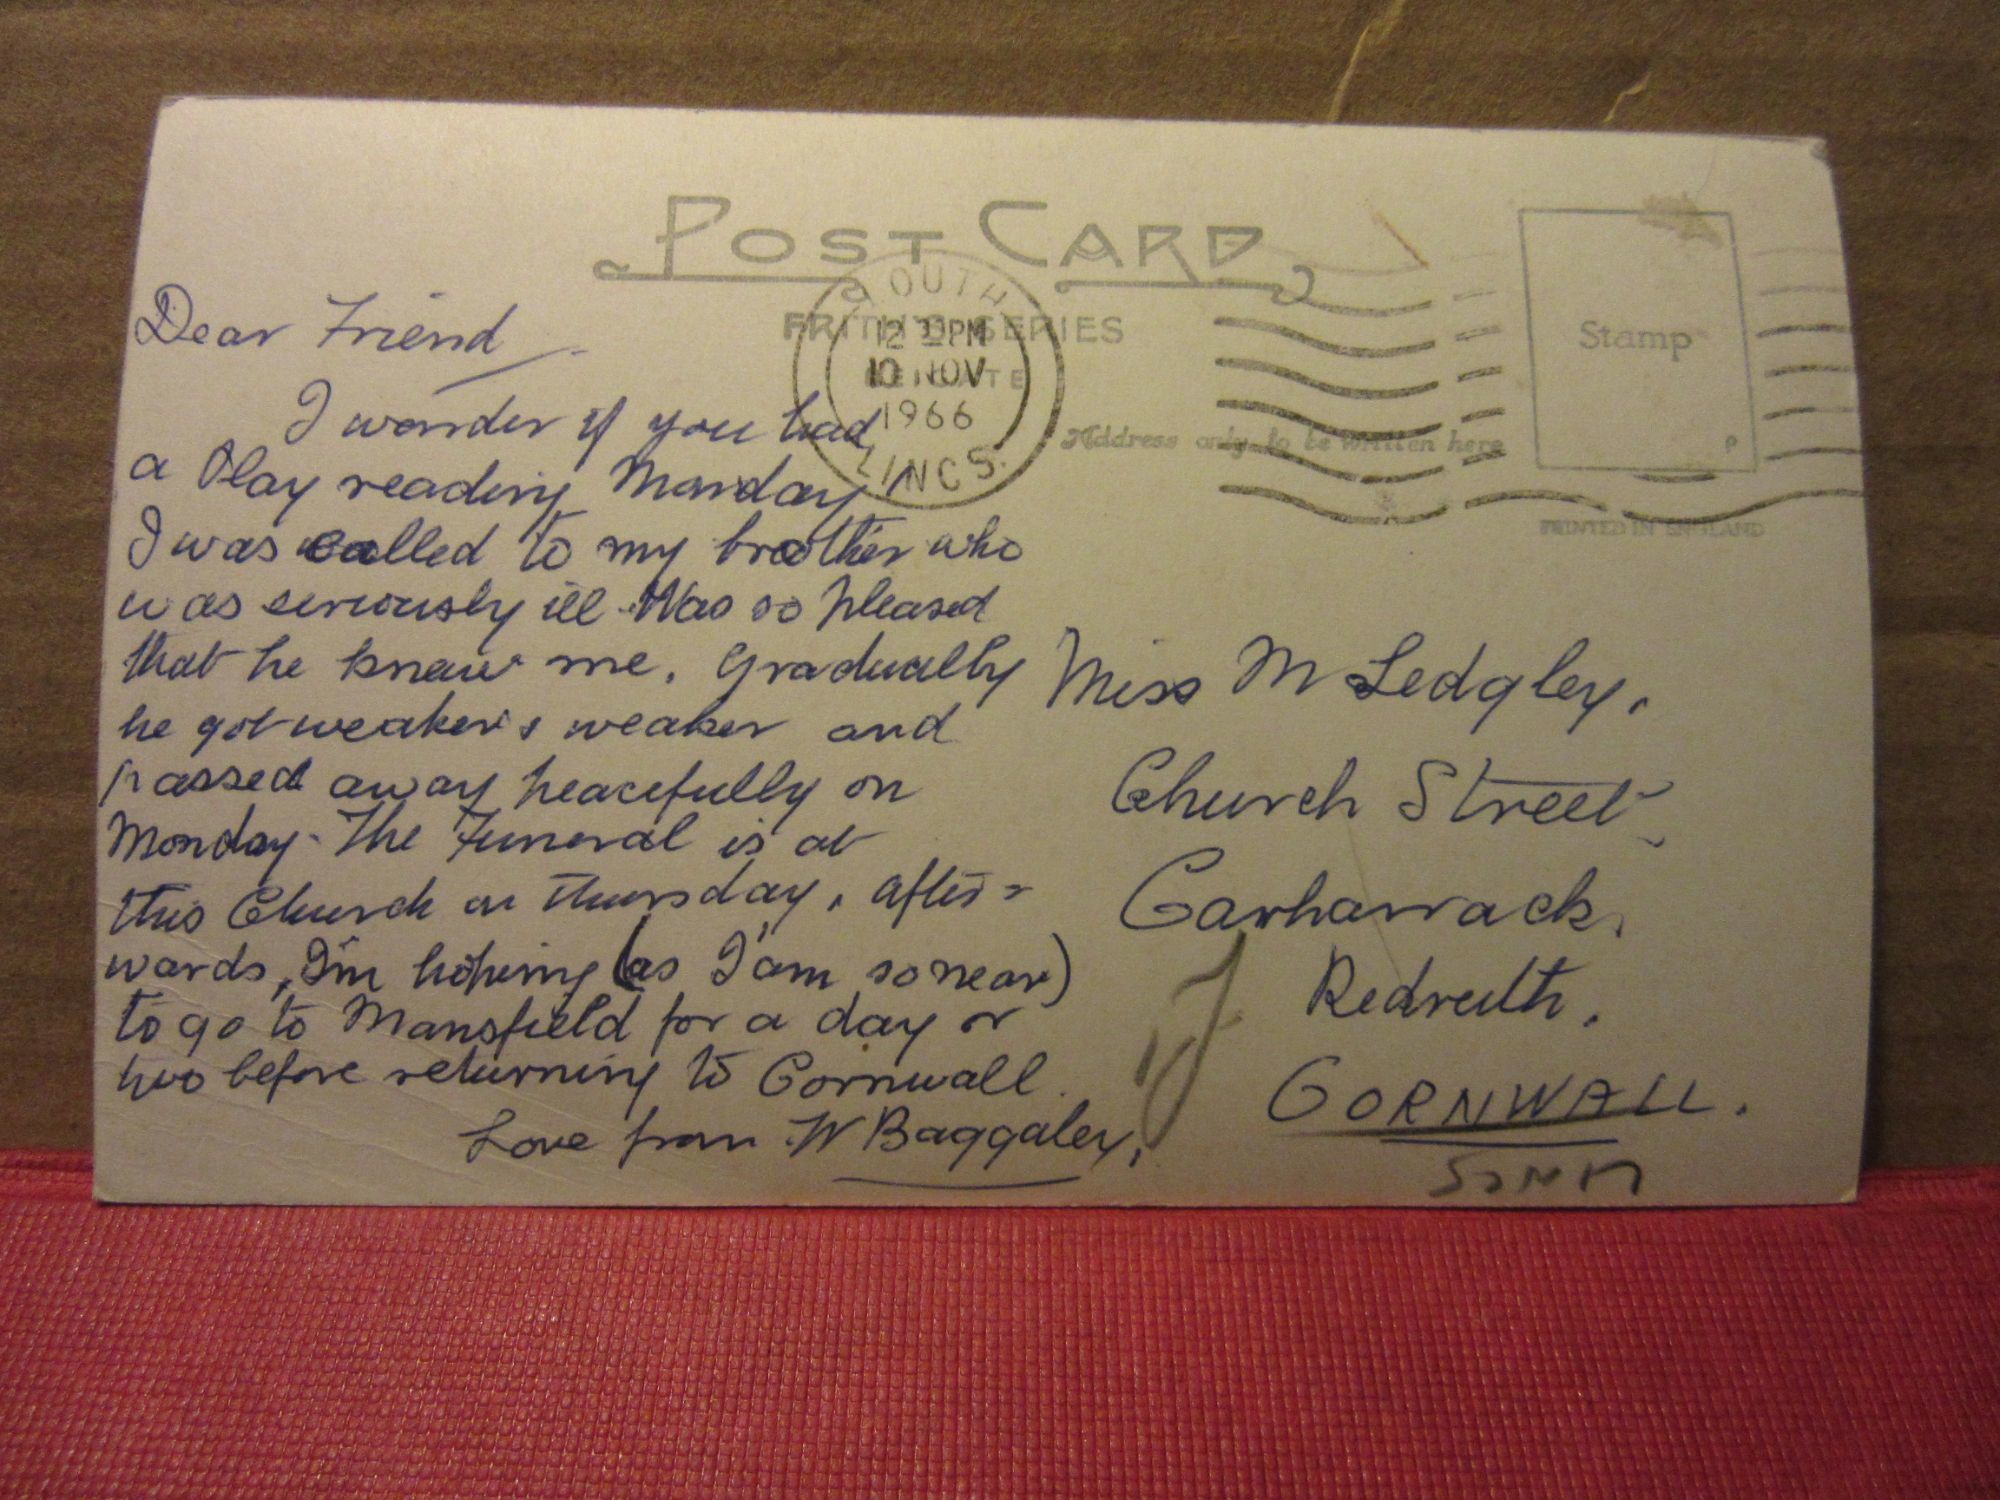 POST CARD
FRITH'S SERIES
REIGATE
LOUTH
12 PM
10 NOV
1966
LINCS.
Stamp
P
Address only to be written here
PRINTED IN ENGLAND
Dear Friend
I wonder if you had
a Play reading Monday
I was called to my brother who
was seriously ill. Was so pleased
that he knew me. Gradually
he got weaker & weaker and
passed away peacefully on
Monday. The Funeral is at
this Church on Thursday, after=
wards, I'm hoping (as I'am so near)
to go to Mansfield for a day or
two before returning to Cornwall.
Love from W Baggaley,
Miss M Ledgley,
Church Street
Carharrack,
Redruth,
CORNWALL.